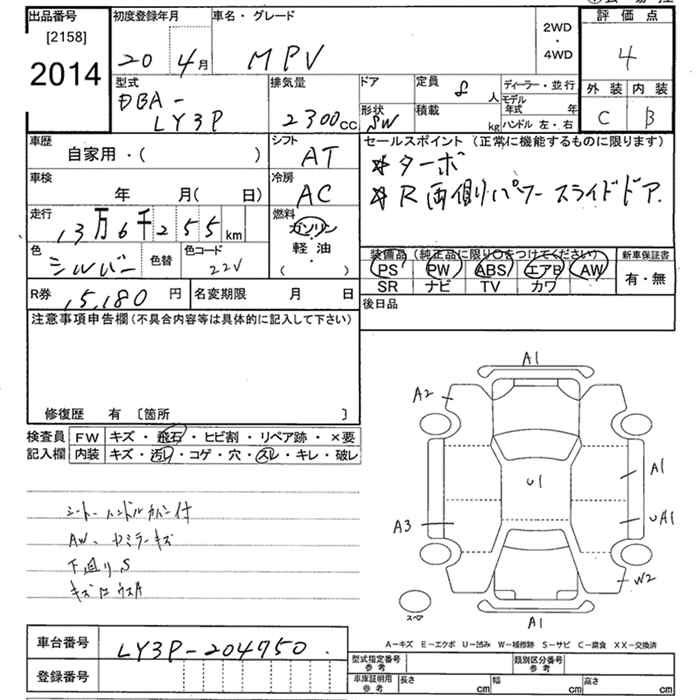 出品番号
[2158]
2014
初度登録年月
20 4月
車名・グレード
MPV
2WD
・
4WD
評価点
4
外装 内装
C B
型式
DBA-
LY3P
排気量
2300cc
ドア
形状
SW
定員
8人
積載
kg
ディーラー・並行
モデル年式 年
ハンドル 左・右
車歴
自家用・( )
シフト
AT
セールスポイント (正常に機能するものに限ります)
*ターボ
*R両側パワースライドドア.
車検
年 月( 日)
冷房
AC
走行
13万6千255km
燃料
ガソリン
・
軽油
・
( )
色
シルバー
色替
色コード
22V
装備品 (純正品に限り○をつけてください)
PS PW ABS エアB AW
SR ナビ TV カワ
新車保証書
有・無
R券
15,180円
名変期限 月 日
後日品
注意事項申告欄(不具合内容等は具体的に記入して下さい)
修復歴 有 [箇所 ]
検査員
記入欄
FW キズ・飛石・ヒビ割・リペア跡・×要
内装 キズ・汚レ・コゲ・穴・スレ・キレ・破レ
シート・ハンドルカバー付
AW、ドアミラーキズ
下廻りS
A1
A2
U1
A1
A3
UA1
W2
A1
スペア
A-キズ E-エクボ U-凹み W-補修跡 S-サビ C-腐食 XX-交換済
車台番号
LY3P-204750.
登録番号
型式指定番号
参考
類別区分番号
参考
車庫証明用
参考
長さ cm 幅 cm 高さ cm